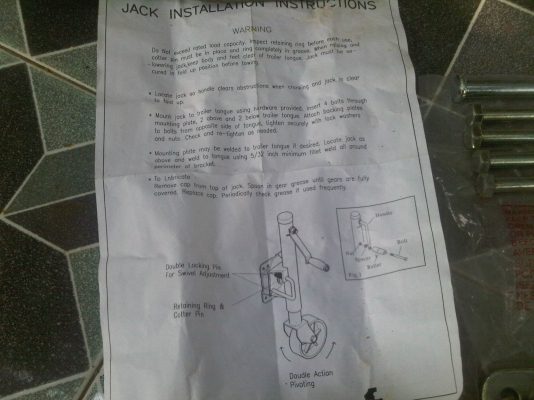 JACK INSTALLATION INSTRUCTIONS
WARNING
Do Not exceed rated load capacity. Inspect retaining ring before each use,
cotter Pin must be in place and ring completely in groove. When raising and
lowering jack, keep body and feet clear of trailer tongue. Jack must be se-
cured in fold up position before towing.
• Locate jack so handle clears obstructions when cranking and jack is clear
to fold up.
• Mount jack to trailer tongue using hardware provided. Insert 4 bolts through
mounting plate, 2 above and 2 below trailer tongue, attach backing plates
to bolts from opposite side of tongue, tighten securely with lock washers
and nuts. Check and re-tighten as needed.
• Mounting plate may be welded to trailer tongue if desired. Locate jack as
above and weld to tongue using 5/32 inch minimum fillet weld all around
perimeter of bracket.
• To Lubricate:
Remove cap from top of jack. Spoon in gear grease until gears are fully
covered. Replace cap. Periodically check grease if used frequently.
Handle
Nut
Bolt
Spacer
Roller
Fig. 1
Double Locking Pin
For Swivel Adjustment
Retaining Ring &
Cotter Pin
Double Action
Pivoting